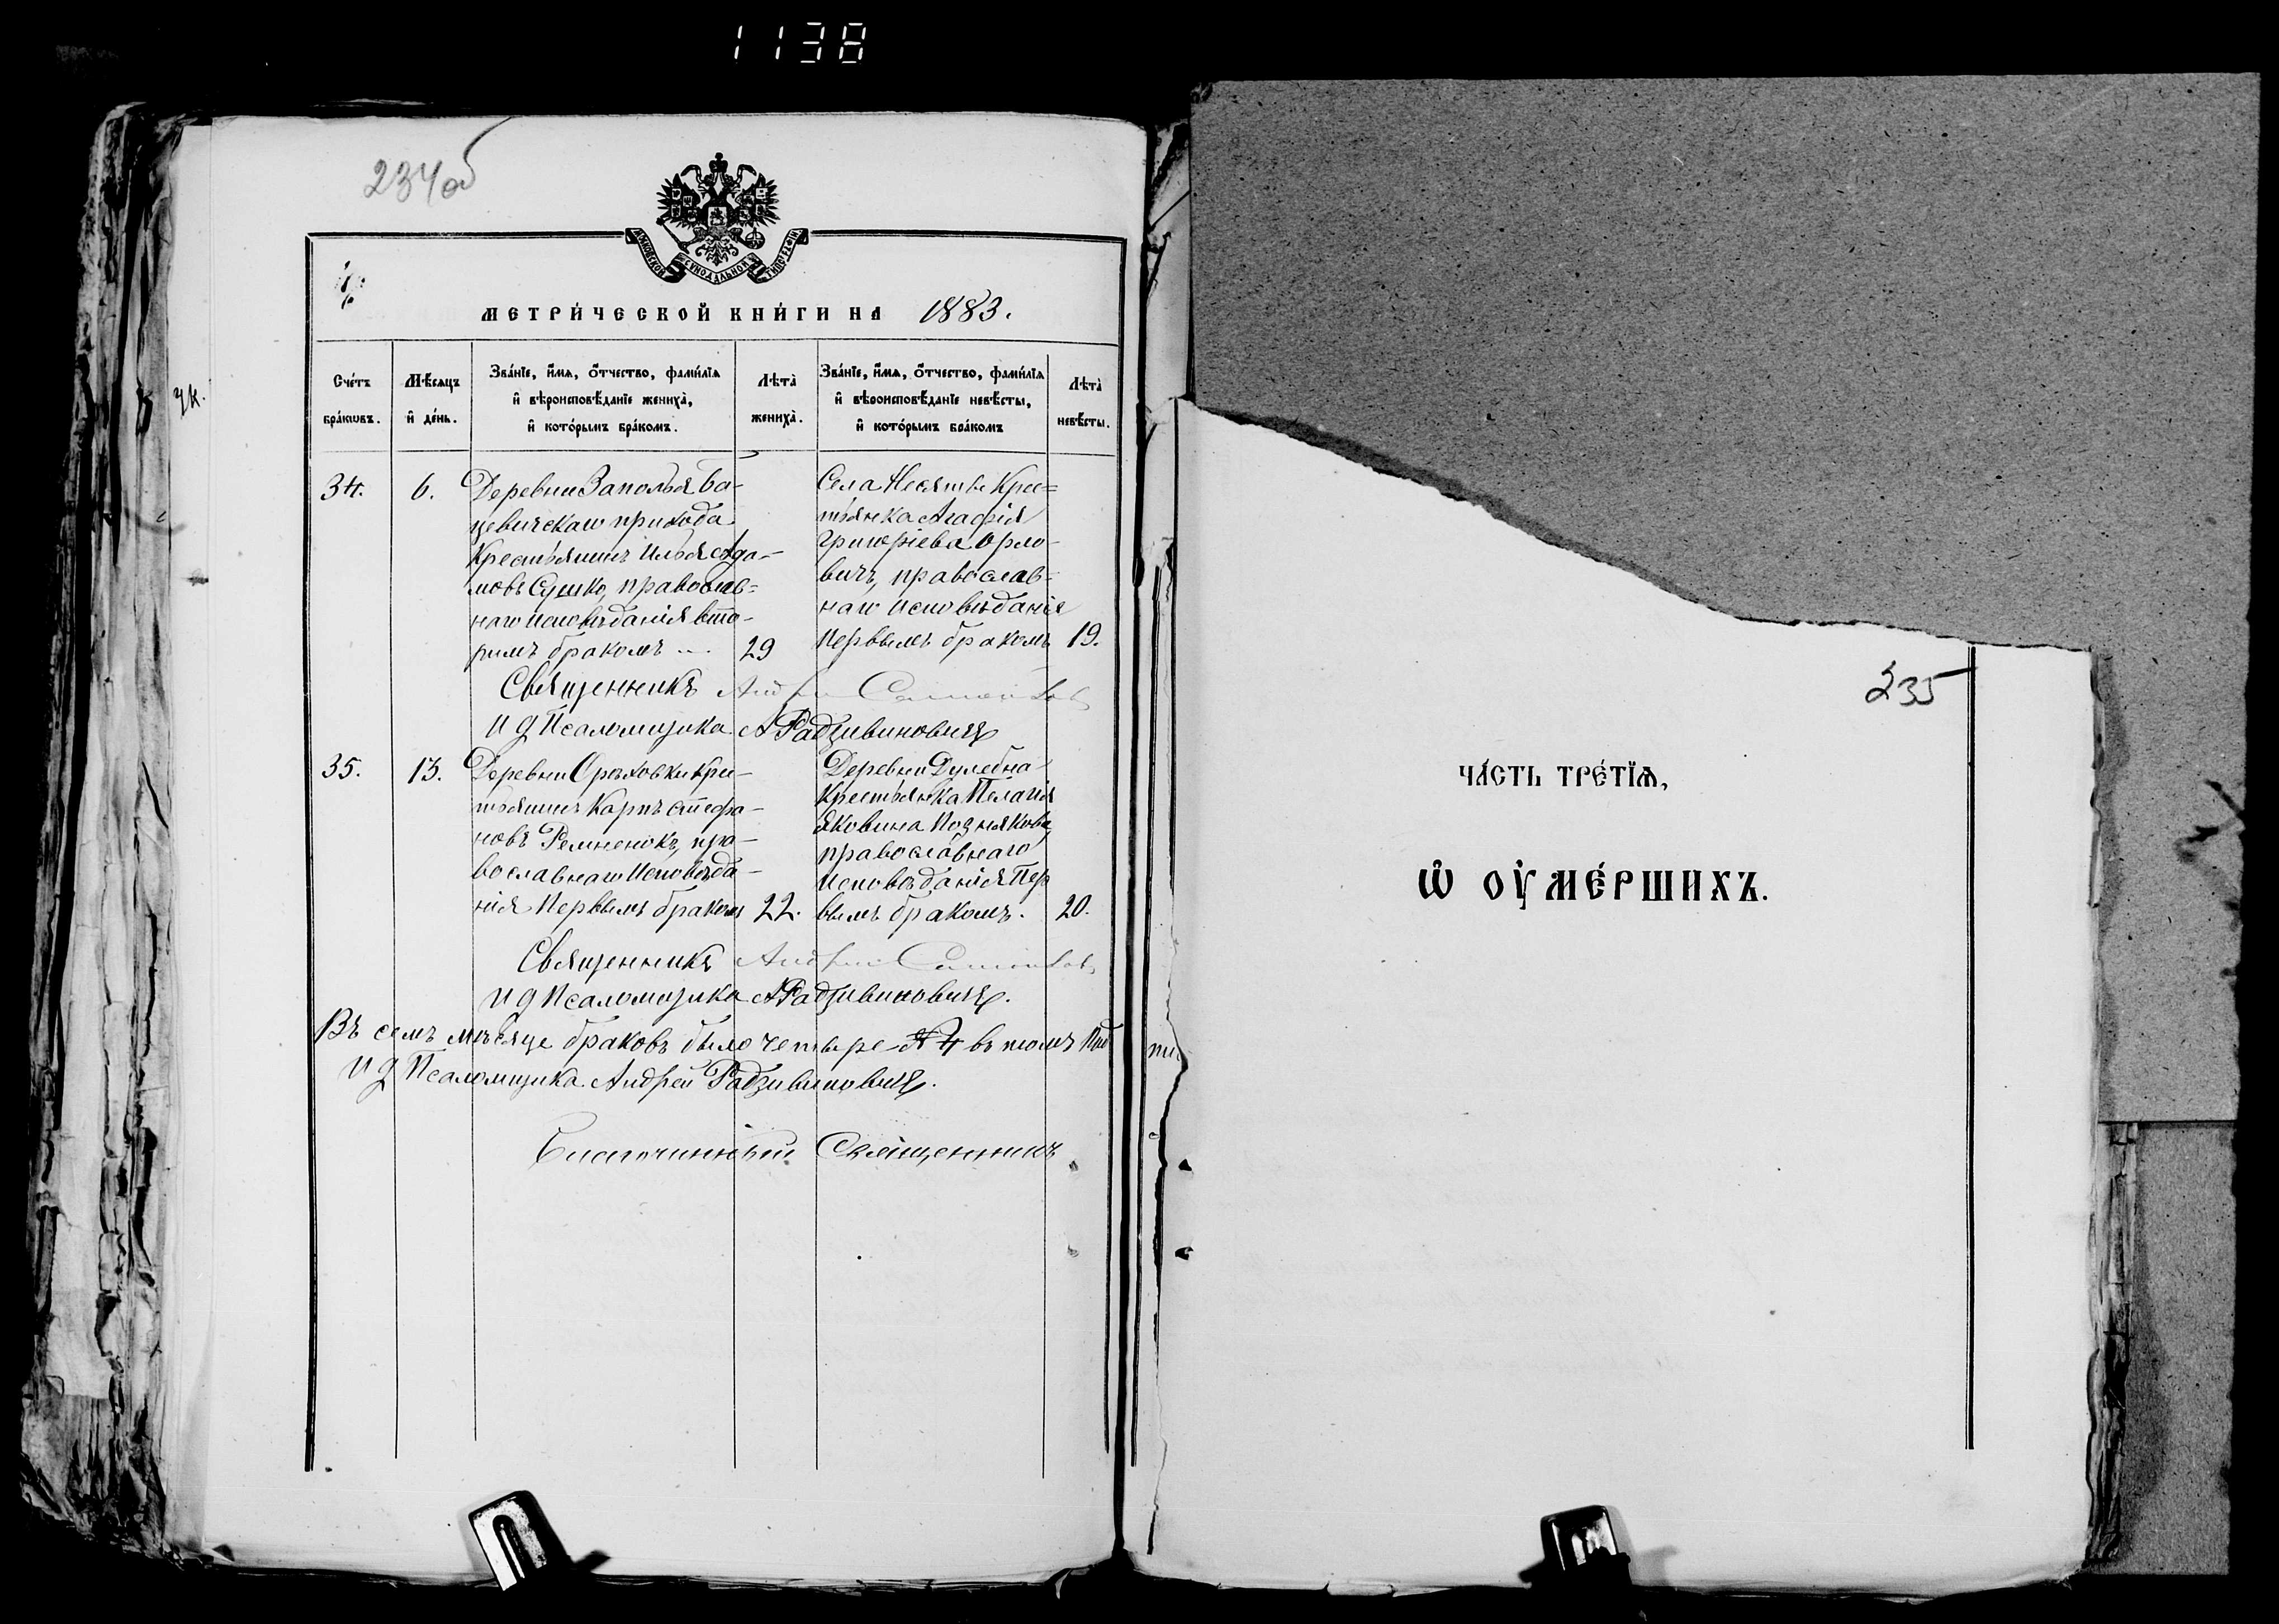 1138
234об
МОСКОВСКОЙ СѴНОДАЛЬНОЙ ТИПОГРАФІИ
МЕТРИ́ЧЕСКОЙ КНИ́ГИ НА 1883.
Сче́тъ бра́кωвъ.
Мѣ́сяцъ и҆ де́нь.
Зва́нїе, и҆́мѧ, ѻ҆́тчество, фами́лїѧ
и҆ вѣроисповѣ́данїе жениха̀,
и҆ кото́рымъ бра́комъ.
Лѣта̀ жениха̀.
Зва́нїе, и҆́мѧ, ѻ҆́тчество, фами́лїѧ
и҆ вѣроисповѣ́данїе невѣ́сты,
и҆ кото́рымъ бра́комъ
Лѣта̀ невѣ́сты.
чк.
34.
6.
Деревни Заполья Ба-
цевичскаго прихода
Крестьянинъ Илья Ада-
мовъ Сушко, православ=
наго исповѣданія вто-
римъ бракомъ
29
Села Несяты Крес=
тьянка Агафія
Григоріева Орло-
вичъ, православ=
наго исповѣданія
первымъ бракомъ
19.
Священникъ Андрей
И д Псаломщика А Радзивиновичъ
35.
13.
Деревни Орѣховки Крес-
тьянинъ Карпъ Стефа-
новъ Ремненокъ, пра-
вославнаго Исповѣда-
нія Первымъ бракомъ
22.
Деревни Дулебна
Крестьянка Пелагія
Яковина Познякова
православнаго
Исповѣданія Пер
вымъ бракомъ.
20.
Священникъ Андрей
И д Псаломщика А Радзивиновичъ.
Въ семъ мѣсяце браковъ было четыре 4 въ томъ
И д Псаломщика Андрей Радзивиновичъ.
Благочинный Священникъ
235
ЧА́СТЬ ТРЕ́ТЇѦ,
Ѽ ОУ҆МЕ́РШИХЪ.